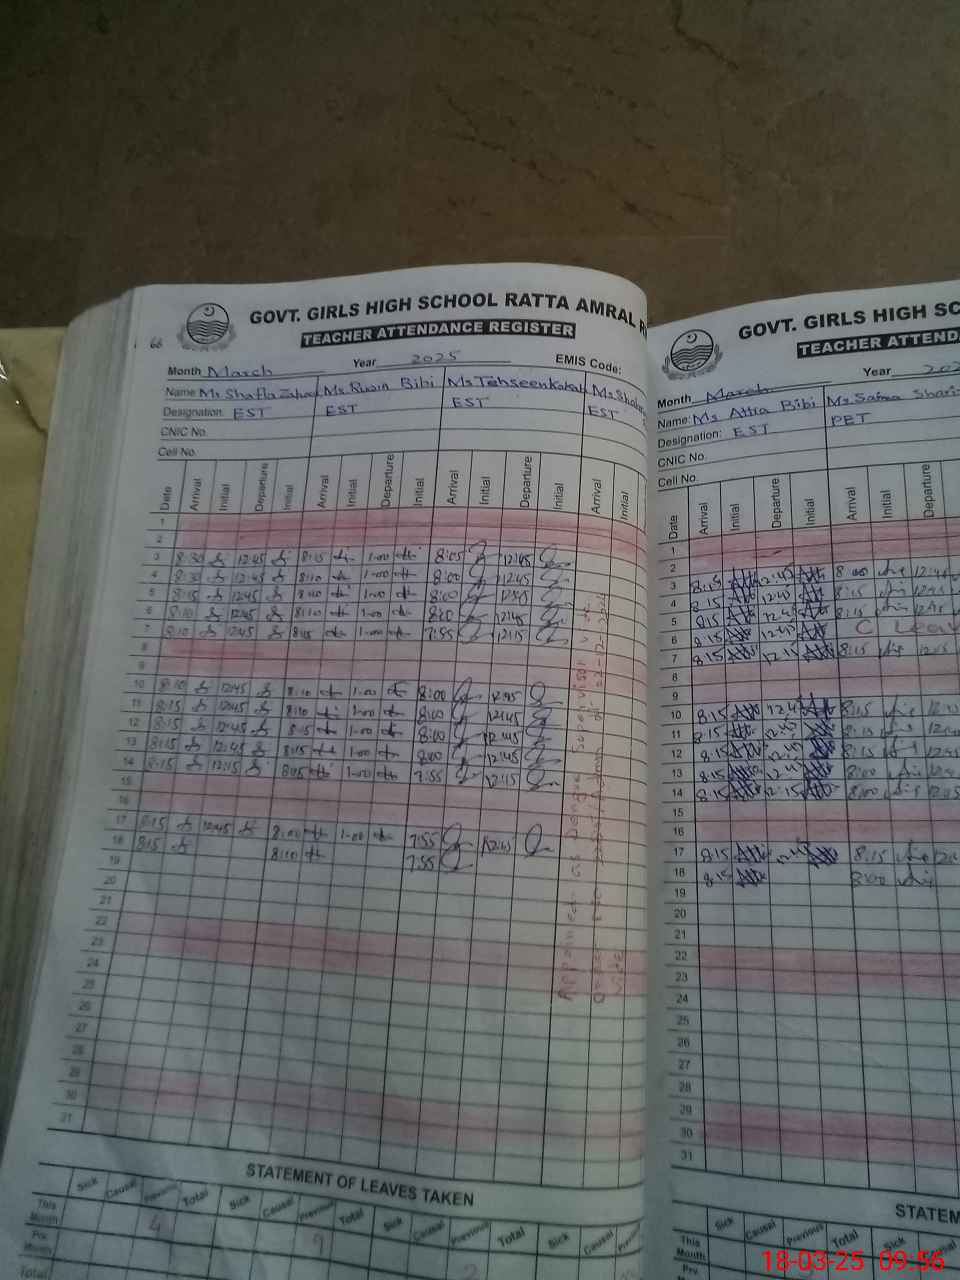 66
GOVT. GIRLS HIGH SCHOOL RATTA AMRAL
TEACHER ATTENDANCE REGISTER
Month March Year 2025 EMIS Code:
Name Ms Shafla Zahoor Ms. Ruain Bibi Ms Tehseen Kokab Ms.
Designation: EST EST EST EST
CNIC No.
Cell No.
Date Arrival Initial Departure Initial Arrival Initial Departure Initial Arrival Initial Departure Initial Arrival Initial
1
2
3 8:30 12:45 8:15 1-00 8:05 12:45
4 8:30 12:45 8:10 1-00 8:00 12:45
5 8:15 12:45 8:10 1-00 8:00 12:45
6 8:10 12:45 8:10 1-00 8:00 12:45
7 8:10 12:45 8:15 1-00 7:55 12:15
8
9
10 8:10 12:45 8:10 1-00 8:00 12:45
11 8:15 12:45 8:10 1-00 8:00 12:45
12 8:15 12:45 8:15 1-00 8:00 12:45
13 8:15 12:45 8:15 1-00 8:00 12:45
14 8:15 12:15 8:05 1-00 7:55 12:15
15
16
17 8:15 12:45 8:00 1-00 7:55 12:45
18 8:15 8:10 7:55
19
20
21
22
23
24
25
26
27
28
29
30
31
Appointed as Dengue Supervisor
STATEMENT OF LEAVES TAKEN
Sick Causal Previous Total Sick Causal Previous Total Sick Causal Previous Total Sick Causal
This Month
Pre. Month 4 9 2
Total
GOVT. GIRLS HIGH SC
TEACHER ATTEND
Month March Year 202
Name: Ms Attia Bibi Ms. Saima
Designation: EST PET
CNIC No.
Cell No.
Date Arrival Initial Departure Initial Arrival Initial Departure
1
2
3 8:15 12:45 8:00 12:45
4 8:15 12:45 8:15 12:45
5 8:15 12:45 8:15 12:45
6 8:15 12:45 C Leav
7 8:15 12:15 8:15 12:15
8
9
10 8:15 12:45 8:15
11 8:15 12:45 8:15
12 8:15 12:45 8:15
13 8:15 12:45 8:00
14 8:15 12:15 8:00
15
16
17 8:15 12:45 8:15
18 8:15 8:00
19
20
21
22
23
24
25
26
27
28
29
30
31
STATEM
Sick Causal Previous Total Sick Causal
This Month
Pre.
18-03-25 09:56